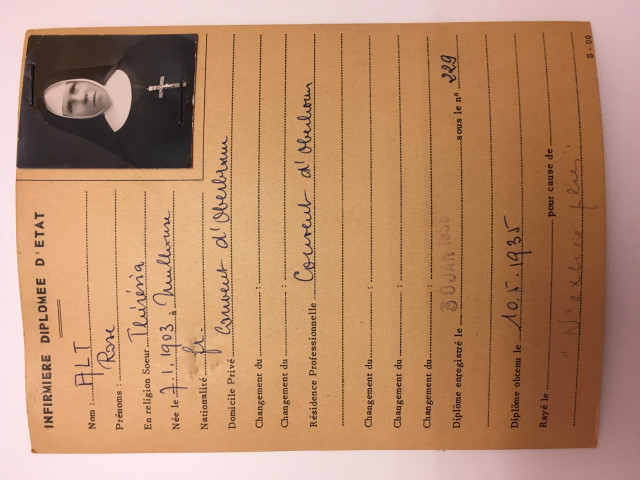 INFIRMIERE DIPLOMEE D'ETAT
Nom : ALT
Prénoms : Rose
En religion Soeur Thérésia
Née le 7.1.1903 à Mulhouse
Nationalité fr.
Domicile Privé Couvent d'Oberbronn
Changement du :
Changement du :
Résidence Professionnelle Couvent d'Oberbronn
Changement du :
Changement du :
Changement du :
Diplôme enregistré le 30 JAN sous le n° 229
Diplôme obtenu le 10.5.1935
Rayé le pour cause de
"N'exerce plus"